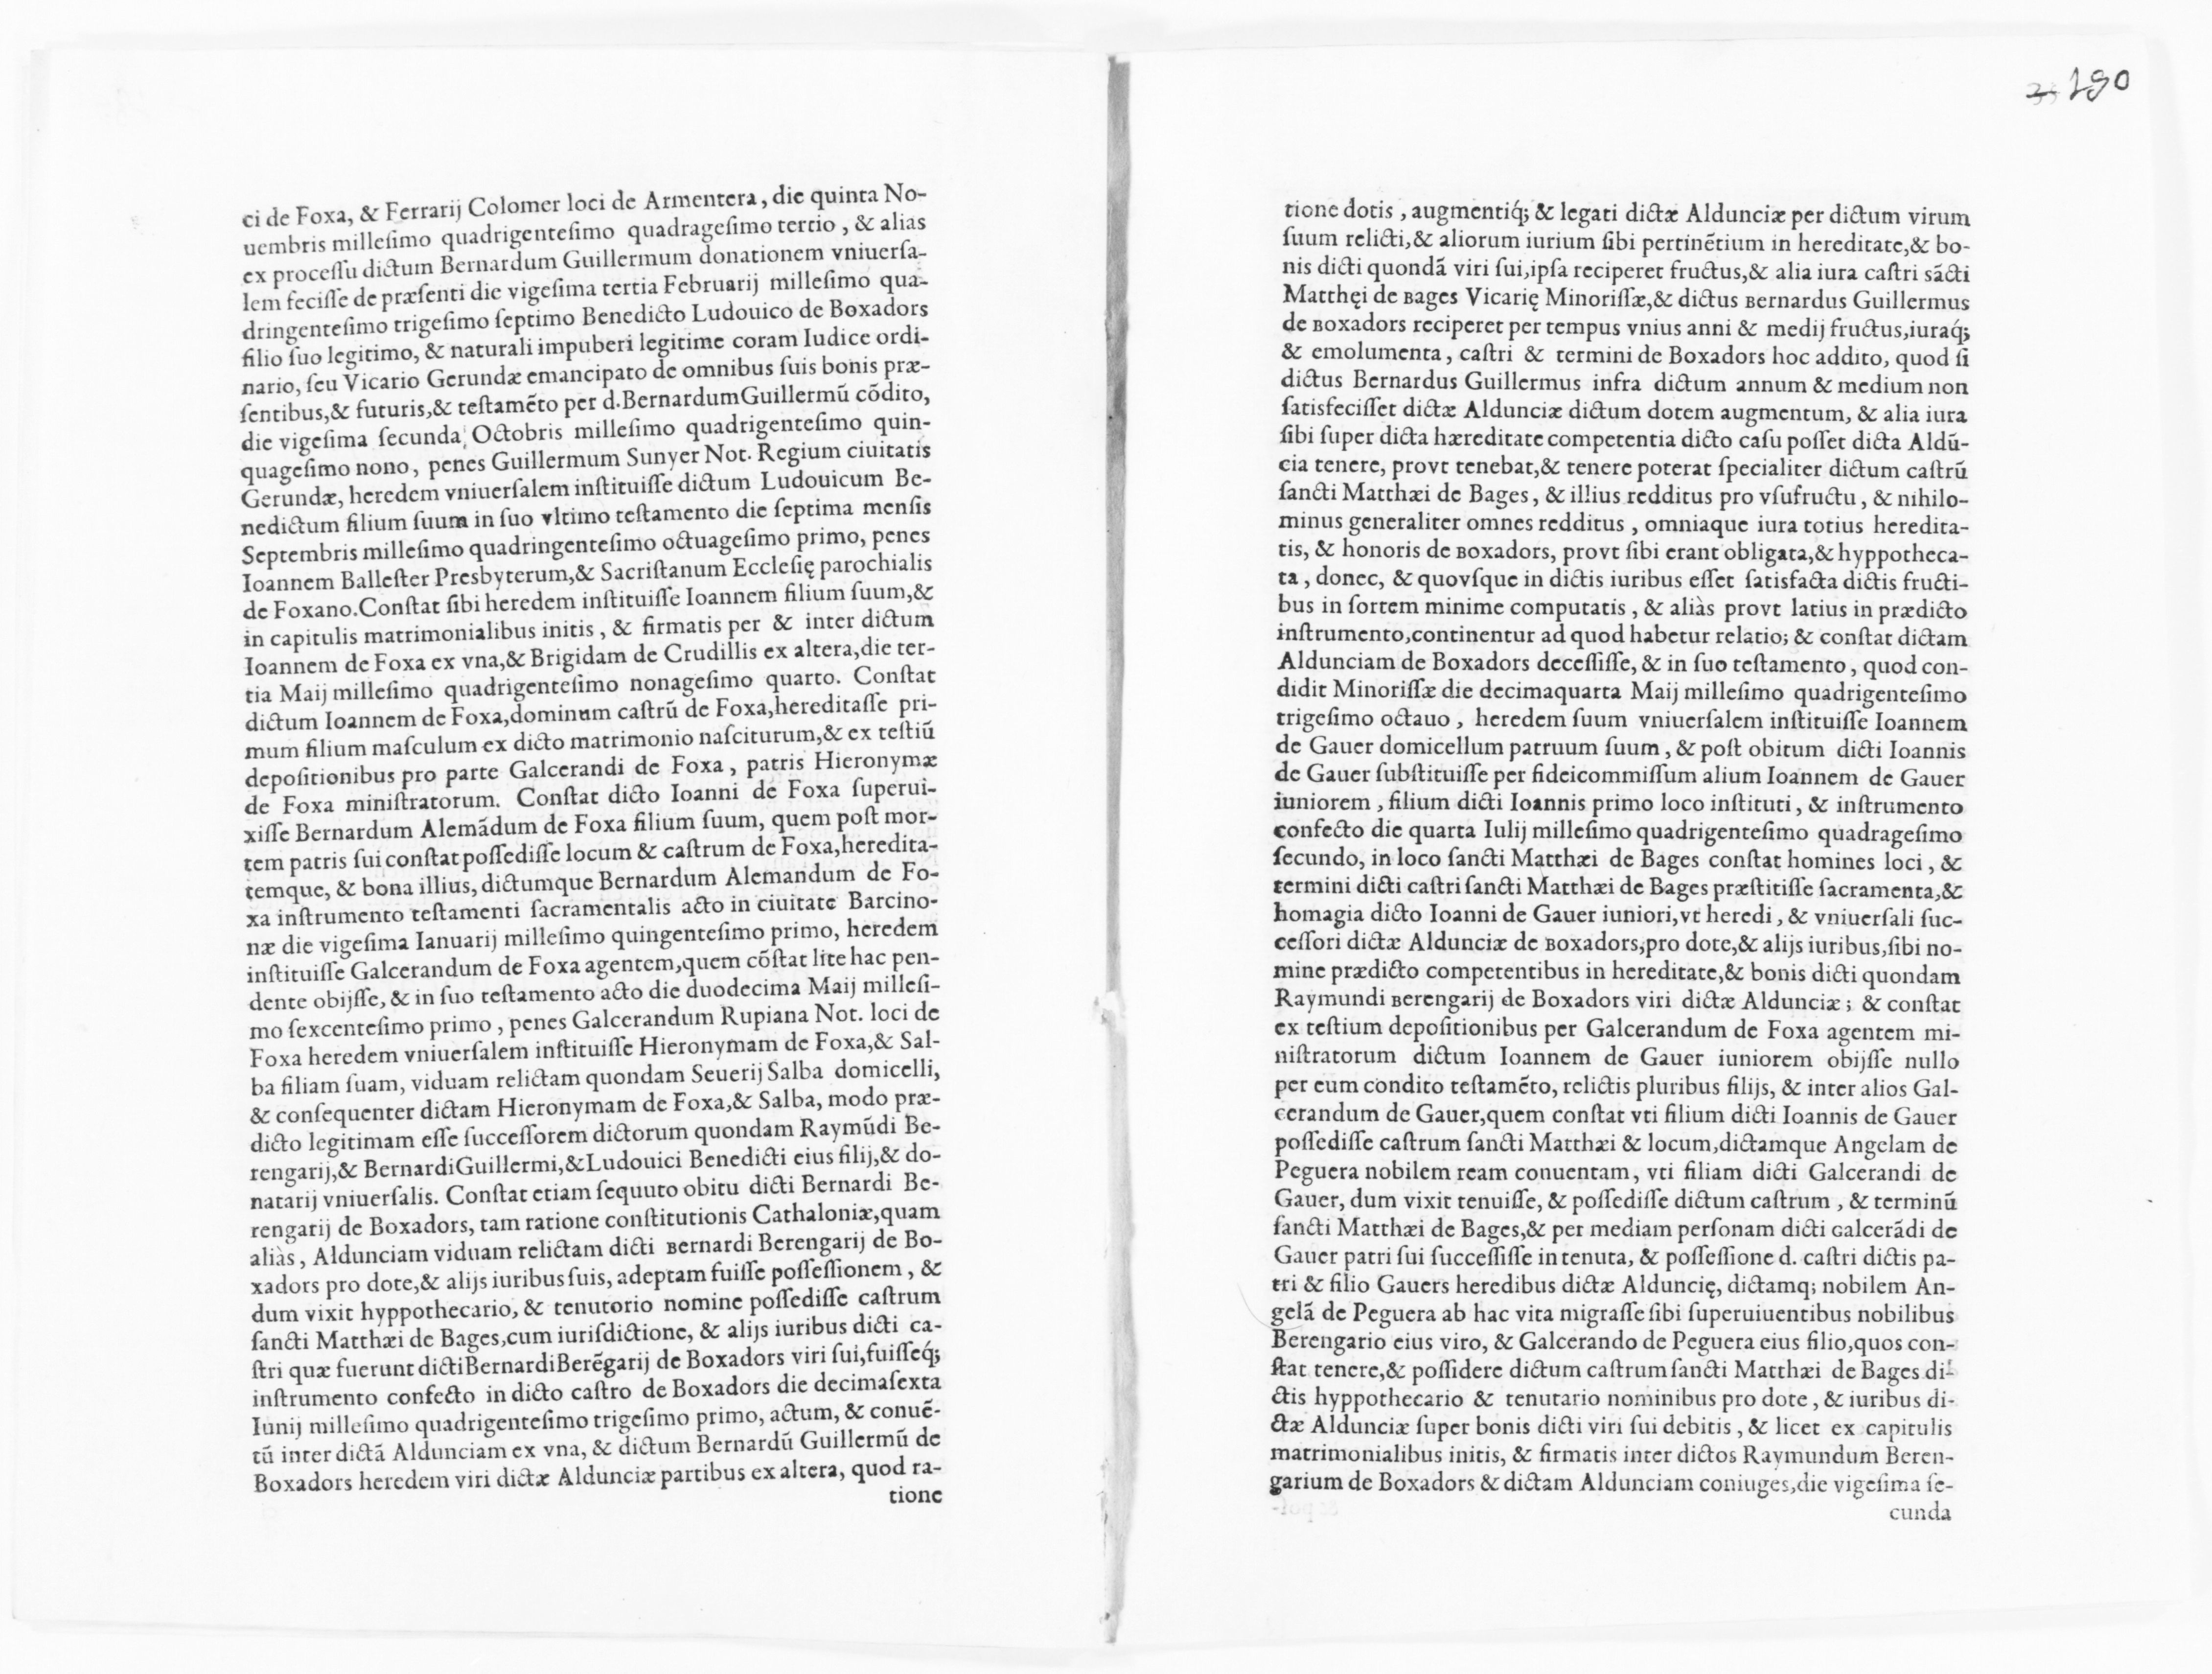 ci de Foxa, & Ferrarij Colomer loci de Armentera, die quinta No-
uembris milleſimo quadrigenteſimo quadrageſimo tertio, & alias
ex proceſſu dictum Bernardum Guillermum donationem vniuerſa-
lem feciſſe de præſenti die vigeſima tertia Februarij milleſimo qua-
dringenteſimo trigeſimo ſeptimo Benedicto Ludouico de Boxadors
filio ſuo legitimo, & naturali impuberi legitime coram Iudice ordi-
nario, ſeu Vicario Gerundæ emancipato de omnibus ſuis bonis præ-
ſentibus,& futuris,& teſtamẽto per d.BernardumGuillermũ cõdito,
die vigeſima ſecunda Octobris milleſimo quadrigenteſimo quin-
quageſimo nono, penes Guillermum Sunyer Not. Regium ciuitatis
Gerundæ, heredem vniuerſalem inſtituiſſe dictum Ludouicum Be-
nedictum filium ſuum in ſuo vltimo teſtamento die ſeptima menſis
Septembris milleſimo quadringenteſimo octuageſimo primo, penes
Ioannem Balleſter Presbyterum,& Sacriſtanum Eccleſię parochialis
de Foxano.Conſtat ſibi heredem inſtituiſſe Ioannem filium ſuum,&
in capitulis matrimonialibus initis, & firmatis per & inter dictum
Ioannem de Foxa ex vna,& Brigidam de Crudillis ex altera,die ter-
tia Maij milleſimo quadrigenteſimo nonageſimo quarto. Conſtat
dictum Ioannem de Foxa,dominum caſtrũ de Foxa,hereditaſſe pri-
mum filium maſculum ex dicto matrimonio naſciturum,& ex teſtiũ
depoſitionibus pro parte Galcerandi de Foxa, patris Hieronymæ
de Foxa miniſtratorum. Conſtat dicto Ioanni de Foxa ſuperui-
xiſſe Bernardum Alemãdum de Foxa filium ſuum, quem poſt mor-
tem patris ſui conſtat poſſediſſe locum & caſtrum de Foxa,heredita-
temque, & bona illius, dictumque Bernardum Alemandum de Fo-
xa inſtrumento teſtamenti ſacramentalis acto in ciuitate Barcino-
næ die vigeſima Ianuarij milleſimo quingenteſimo primo, heredem
inſtituiſſe Galcerandum de Foxa agentem,quem cõſtat lite hac pen-
dente obijſſe, & in ſuo teſtamento acto die duodecima Maij milleſi-
mo ſexcenteſimo primo, penes Galcerandum Rupiana Not. loci de
Foxa heredem vniuerſalem inſtituiſſe Hieronymam de Foxa,& Sal-
ba filiam ſuam, viduam relictam quondam Seuerij Salba domicelli,
& conſequenter dictam Hieronymam de Foxa,& Salba, modo præ-
dicto legitimam eſſe ſucceſſorem dictorum quondam Raymũdi Be-
rengarij,& BernardiGuillermi,&Ludouici Benedicti eius filij,& do-
natarij vniuerſalis. Conſtat etiam ſequuto obitu dicti Bernardi Be-
rengarij de Boxadors, tam ratione conſtitutionis Cathaloniæ,quam
aliàs, Aldunciam viduam relictam dicti Bernardi Berengarij de Bo-
xadors pro dote,& alijs iuribus ſuis, adeptam fuiſſe poſſeſſionem, &
dum vixit hyppothecario, & tenutorio nomine poſſediſſe caſtrum
ſancti Matthæi de Bages,cum iuriſdictione, & alijs iuribus dicti ca-
ſtri quæ fuerunt dictiBernardiBerẽgarij de Boxadors viri ſui,fuiſſeq́;
inſtrumento confecto in dicto caſtro de Boxadors die decimaſexta
Iunij milleſimo quadrigenteſimo trigeſimo primo, actum, & conuẽ-
tũ inter dictã Aldunciam ex vna, & dictum Bernardũ Guillermũ de
Boxadors heredem viri dictæ Aldunciæ partibus ex altera, quod ra-
tione
190
tione dotis, augmentiq́; & legati dictæ Aldunciæ per dictum virum
ſuum relicti,& aliorum iurium ſibi pertinẽtium in hereditate,& bo-
nis dicti quondã viri ſui,ipſa reciperet fructus,& alia iura caſtri sãcti
Matthęi de Bages Vicarię Minoriſſæ,& dictus Bernardus Guillermus
de Boxadors reciperet per tempus vnius anni & medij fructus,iuraq́;
& emolumenta, caſtri & termini de Boxadors hoc addito, quod ſi
dictus Bernardus Guillermus infra dictum annum & medium non
ſatisfeciſſet dictæ Aldunciæ dictum dotem augmentum, & alia iura
ſibi ſuper dicta hæreditate competentia dicto caſu poſſet dicta Aldũ-
cia tenere, provt tenebat,& tenere poterat ſpecialiter dictum caſtrũ
ſancti Matthæi de Bages, & illius redditus pro vſufructu, & nihilo-
minus generaliter omnes redditus, omniaque iura totius heredita-
tis, & honoris de Boxadors, provt ſibi erant obligata,& hyppotheca-
ta, donec, & quovſque in dictis iuribus eſſet ſatisfacta dictis fructi-
bus in ſortem minime computatis, & aliàs provt latius in prædicto
inſtrumento,continentur ad quod habetur relatio; & conſtat dictam
Aldunciam de Boxadors deceſſiſſe, & in ſuo teſtamento, quod con-
didit Minoriſſæ die decimaquarta Maij milleſimo quadrigenteſimo
trigeſimo octauo, heredem ſuum vniuerſalem inſtituiſſe Ioannem
de Gauer domicellum patruum ſuum, & poſt obitum dicti Ioannis
de Gauer ſubſtituiſſe per fideicommiſſum alium Ioannem de Gauer
iuniorem, filium dicti Ioannis primo loco inſtituti, & inſtrumento
confecto die quarta Iulij milleſimo quadrigenteſimo quadrageſimo
ſecundo, in loco ſancti Matthæi de Bages conſtat homines loci, &
termini dicti caſtri ſancti Matthæi de Bages præſtitiſſe ſacramenta,&
homagia dicto Ioanni de Gauer iuniori,vt heredi, & vniuerſali ſuc-
ceſſori dictæ Aldunciæ de Boxadors,pro dote,& alijs iuribus,ſibi no-
mine prædicto competentibus in hereditate,& bonis dicti quondam
Raymundi Berengarij de Boxadors viri dictæ Aldunciæ; & conſtat
ex teſtium depoſitionibus per Galcerandum de Foxa agentem mi-
niſtratorum dictum Ioannem de Gauer iuniorem obijſſe nullo
per eum condito teſtamẽto, relictis pluribus filijs, & inter alios Gal-
cerandum de Gauer,quem conſtat vti filium dicti Ioannis de Gauer
poſſediſſe caſtrum ſancti Matthæi & locum,dictamque Angelam de
Peguera nobilem ream conuentam, vti filiam dicti Galcerandi de
Gauer, dum vixit tenuiſſe, & poſſediſſe dictum caſtrum, & terminũ
ſancti Matthæi de Bages,& per mediam perſonam dicti Galcerãdi de
Gauer patri ſui ſucceſſiſſe in tenuta, & poſſeſſione d. caſtri dictis pa-
tri & filio Gauers heredibus dictæ Alduncię, dictamq; nobilem An-
gelã de Peguera ab hac vita migraſſe ſibi ſuperuiuentibus nobilibus
Berengario eius viro, & Galcerando de Peguera eius filio,quos con-
ſtat tenere,& poſſidere dictum caſtrum ſancti Matthæi de Bages di-
ctis hyppothecario & tenutario nominibus pro dote, & iuribus di-
ctæ Aldunciæ ſuper bonis dicti viri ſui debitis, & licet ex capitulis
matrimonialibus initis, & firmatis inter dictos Raymundum Beren-
garium de Boxadors & dictam Aldunciam coniuges,die vigeſima ſe-
cunda